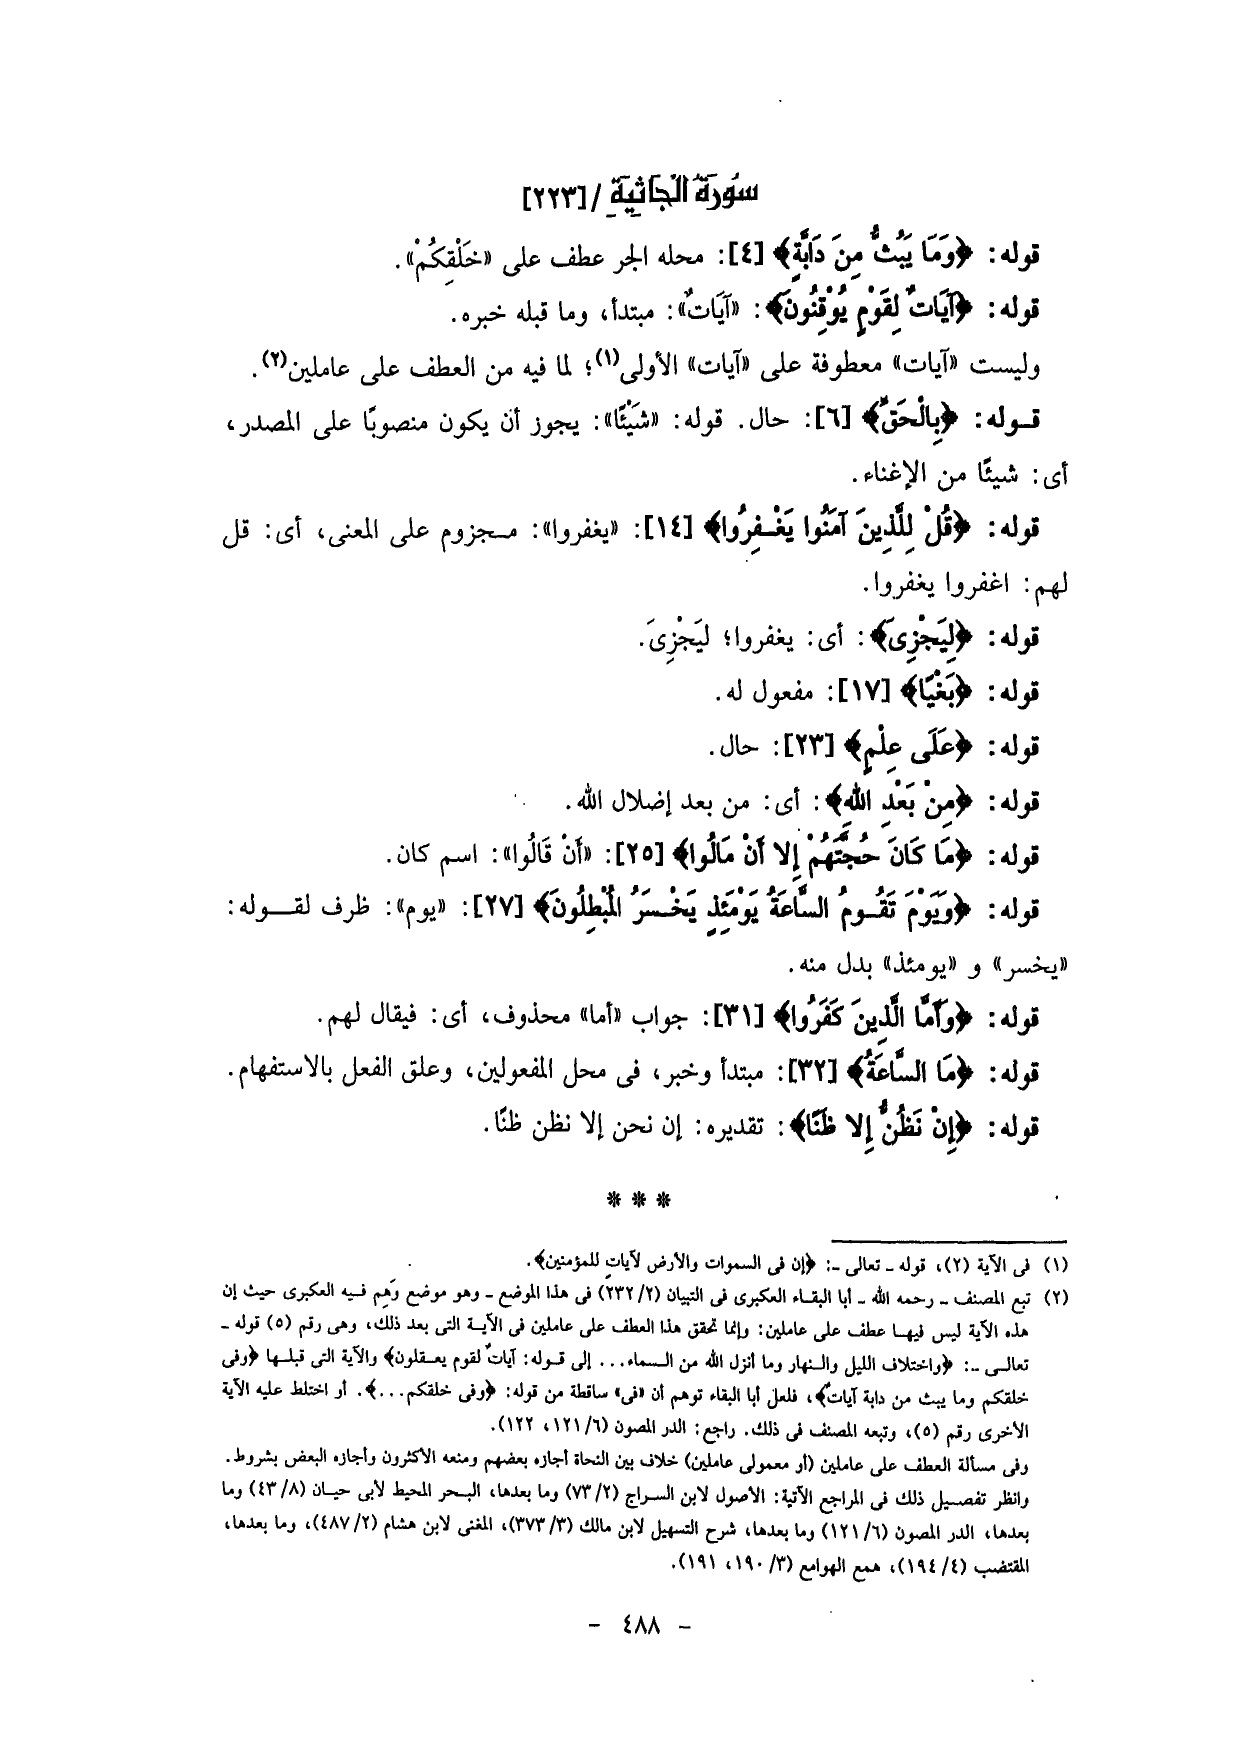 سُورَة الجَاثِيَةِ /[٢٢٣]
قوله: ﴿وَمَا يَبُثُّ مِنَ دَابَّةٍ﴾ [٤]: محله الجر عطف على «خَلْقِكُمْ».
قوله: ﴿آيَاتٌ لِقَوْمٍ يُوْقِنُونَ﴾: «آيَاتٌ»: مبتدأ، وما قبله خبره.
وليست «آيات» معطوفة على «آيات» الأولى(١)؛ لما فيه من العطف على عاملين(٢).
قـوله: ﴿بِالْحَقِّ﴾ [٦]: حال. قوله: «شَيْئًا»: يجوز أن يكون منصوبًا على المصدر،
أى: شيئًا من الإغناء.
قوله: ﴿قُلْ لِلَّذِينَ آمَنُوا يَغْـفِرُوا﴾ [١٤]: «يغفروا»: مـجزوم على المعنى، أى: قل
لهم: اغفروا يغفروا.
قوله: ﴿لِيَجْزِىَ﴾: أى: يغفروا؛ ليَجْزِىَ.
قوله: ﴿بَغْيًا﴾ [١٧]: مفعول له.
قوله: ﴿عَلَى عِلْمٍ﴾ [٢٣]: حال.
قوله: ﴿مِنْ بَعْدِ اللهِ﴾: أى: من بعد إضلال الله.
قوله: ﴿مَا كَانَ حُجَّتَهُمْ إِلا أَنْ مَالُوا﴾ [٢٥]: «أَنْ قَالُوا»: اسم كان.
قوله: ﴿وَيَوْمَ تَقُـومُ السَّاعَةُ يَوْمَئِذٍ يَخْسَرُ الْمُبْطِلُونَ﴾ [٢٧]: «يوم»: ظرف لقـــوله:
«يخسر» و «يومئذ» بدل منه.
قوله: ﴿وَأَمَّا الَّذِينَ كَفَرُوا﴾ [٣١]: جواب «أما» محذوف، أى: فيقال لهم.
قوله: ﴿مَا السَّاعَةُ﴾ [٣٢]: مبتدأ وخبر، فى محل المفعولين، وعلق الفعل بالاستفهام.
قوله: ﴿إِنْ نَظُنُّ إِلا ظَنًّا﴾: تقديره: إن نحن إلا نظن ظنًا.
* * *
(١) فى الآية (٢)، قوله ـ تعالى ـ: ﴿إن فى السموات والأرض لآياتٍ للمؤمنين﴾.
(٢) تبع المصنف ـ رحمه الله ـ أبا البقـاء العكبرى فى التبيان (٢/ ٢٣٢) فى هذا الموضع ـ وهو موضع وَهِم فـيه العكبرى حيث إن
هذه الآية ليس فيهـا عطف على عاملين: وإنما تحقق هذا العطف على عاملين فى الآيـة التى بعد ذلك، وهى رقم (٥) قوله ـ
تعالـى ـ: ﴿واختلاف الليل والـنهار وما أنزل الله من السمـاء... إلى قـوله: آياتٌ لقوم يعـقلون﴾ والآية التى قبلـها ﴿وفى
خلقكم وما يبث من دابة آياتٌ﴾، فلعل أبا البقاء توهم أن «فى» ساقطة من قوله: ﴿وفى خلقكم...﴾. أو اختلط عليه الآية
الأخرى رقم (٥)، وتبعه المصنف فى ذلك. راجع: الدر المصون (٦/ ١٢١، ١٢٢).
وفى مسألة العطف على عاملين (أو معمولى عاملين) خلاف بين النحاة أجازه بعضهم ومنعه الأكثرون وأجازه البعض بشروط.
وانظر تفصـيل ذلك فى المراجع الآتية: الأصول لابن السراج (٢/ ٧٣) وما بعدها، البحر المحيط لأبى حيـان (٨/ ٤٣) وما
بعدها، الدر المصون (٦/ ١٢١) وما بعدها، شرح التسهيل لابن مالك (٣/ ٣٧٣)، المغنى لابن هشام (٢/ ٤٨٧)، وما بعدها،
المقتضب (٤/ ١٩٤)، همع الهوامع (٣/ ١٩٠، ١٩١).
- ٤٨٨ -